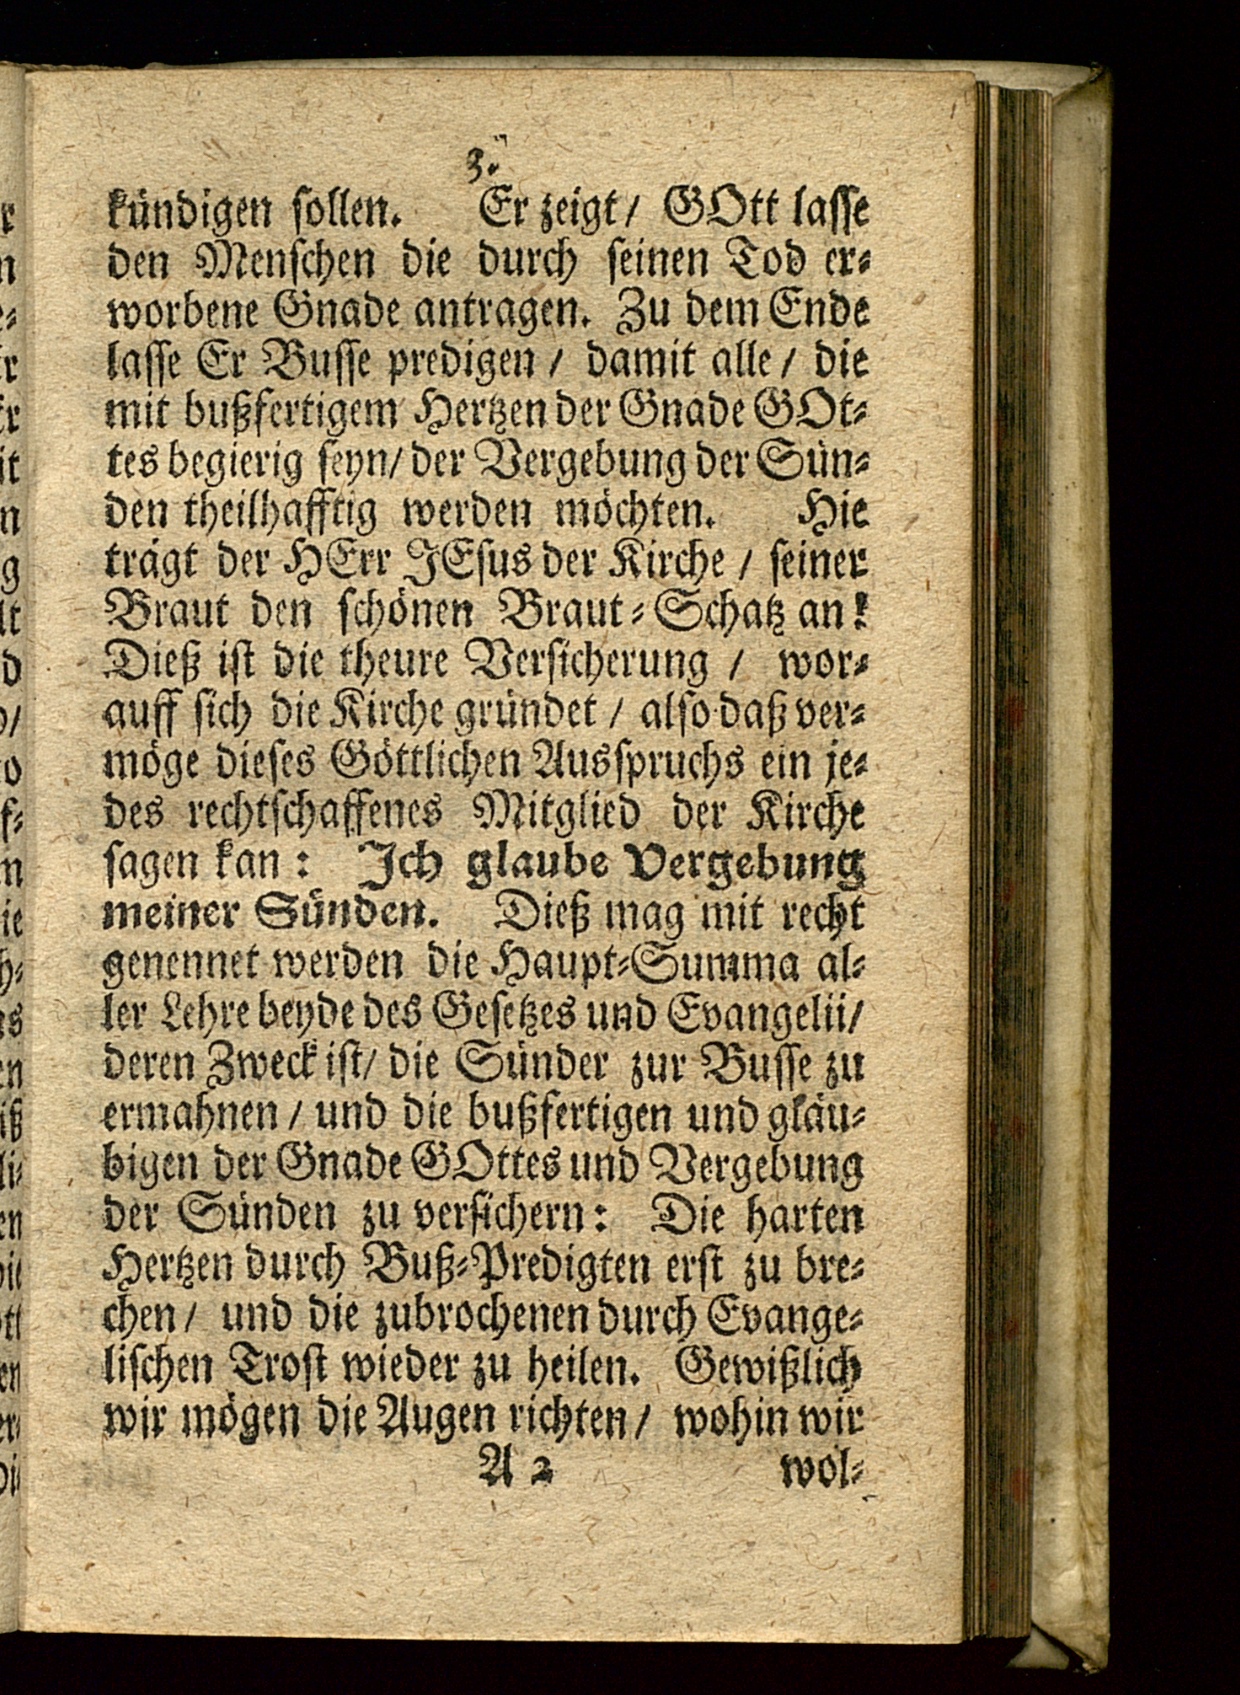 3.
kündigen sollen. Er zeigt / GOtt lasse
den Menschen die durch seinen Tod er-
worbene Gnade antragen. Zu dem Ende
lasse Er Busse predigen / damit alle / die
mit bußfertigem Hertzen der Gnade GOt-
tes begierig seyn / der Vergebung der Sün-
den theilhafftig werden möchten. Hie
trägt der HErr JEsus der Kirche / seiner
Braut den schönen Braut-Schatz an!
Dieß ist die theure Versicherung / wor-
auff sich die Kirche gründet / also daß ver-
möge dieses Göttlichen Ausspruchs ein je-
des rechtschaffenes Mitglied der Kirche
sagen kan: Ich glaube Vergebung
meiner Sünden. Dieß mag mit recht
genennet werden die Haupt-Summa al-
ler Lehre beyde des Gesetzes und Evangelii /
deren Zweck ist / die Sünder zur Busse zu
ermahnen / und die bußfertigen und gläu-
bigen der Gnade GOttes und Vergebung
der Sünden zu versichern: Die harten
Hertzen durch Buß-Predigten erst zu bre-
chen / und die zubrochenen durch Evange-
lischen Trost wieder zu heilen. Gewißlich
wir mögen die Augen richten / wohin wir
A 2 wol-